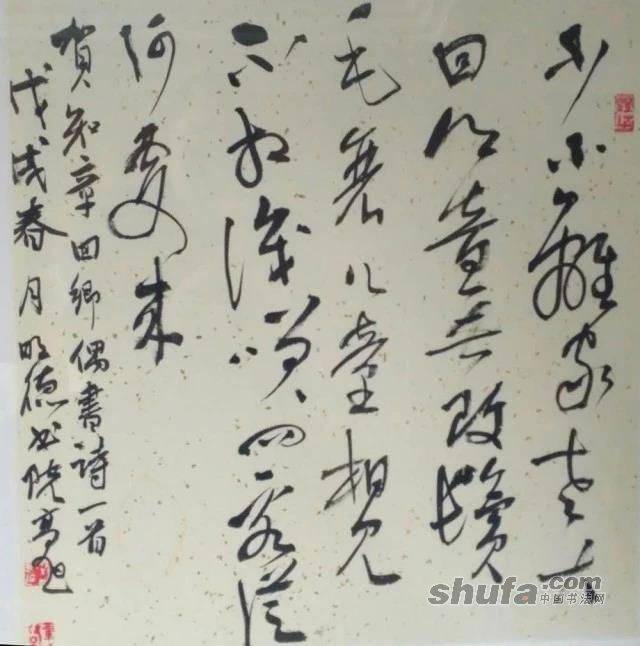 少小離家老大
回乡音无改鬢
毛衰儿童相见
不相識笑问客從
何處来
賀知章回鄉偶書詩一首
戊戌春月明德书院高旭
shufa.com
中国书法网